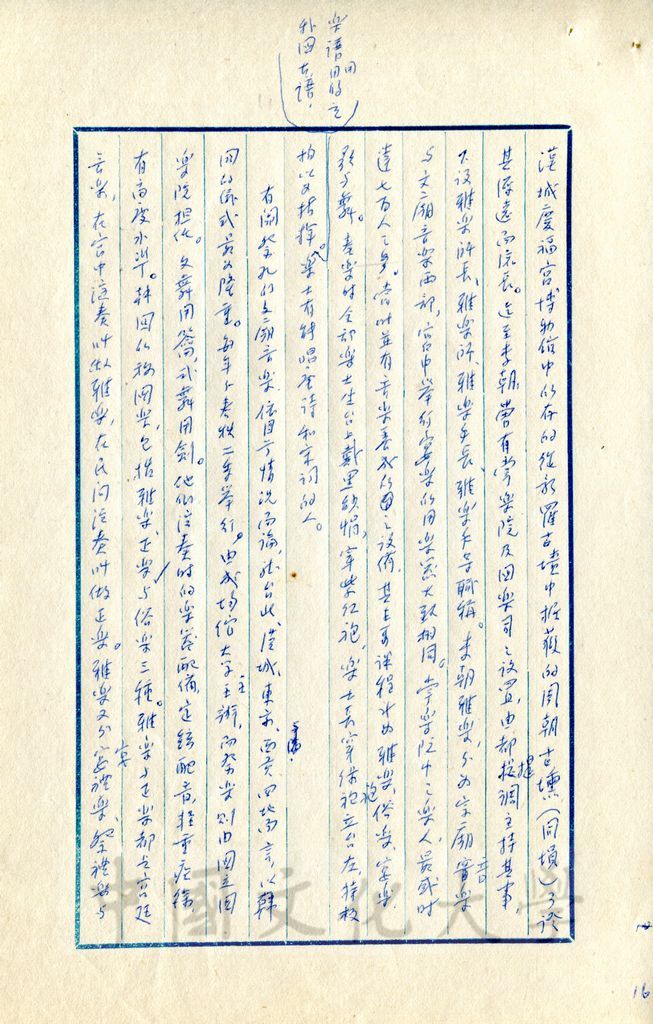 樂譜用的是
外國古譜，
漢城慶福宮博物館中保存的從新羅古墳中掘獲的周朝古壎（同塤）可證
其源遠而流長。迄至李朝，嘗有掌樂院及國樂司之設置，由都提調主持其事，
下設雅樂所長、雅樂師、雅樂手長、雅樂手等職稱。李朝雅樂，分為宗廟音樂
与文廟音樂兩部，宮中舉行宴樂的用樂
大致相同。掌樂院中之樂人，最盛時
達七百人之多。當時並有音樂養成所之設備，其主要課程計為雅樂、俗樂、宴樂、
歌与舞。奏樂時全部樂士坐台上戴黑紗帽，穿紫紅袍，樂士長穿綠袍立台左，持
拍以為指揮。樂士有時唱唐詩和宋詞的人。
有關祭孔的文廟音樂，依目下情況而論，就台北、漢城、東京、西貢四地而言，以韓
國的儀式最為隆重。每年分春秋二季舉行。由成均館大學主辦，而祭樂則由國立國
樂院担任。文舞用籥，武舞用劍。他們演奏時的樂器配備，定絃配音，輕重疾徐，
有高度水準。韓國的稱國樂，包括雅樂、正樂与俗樂三種。雅樂与正樂都是宮廷
音樂，在宮中演奏叫做雅樂，在民間演奏叫做正樂。雅樂又分宴禮樂、祭禮樂与
中國文化大學
16